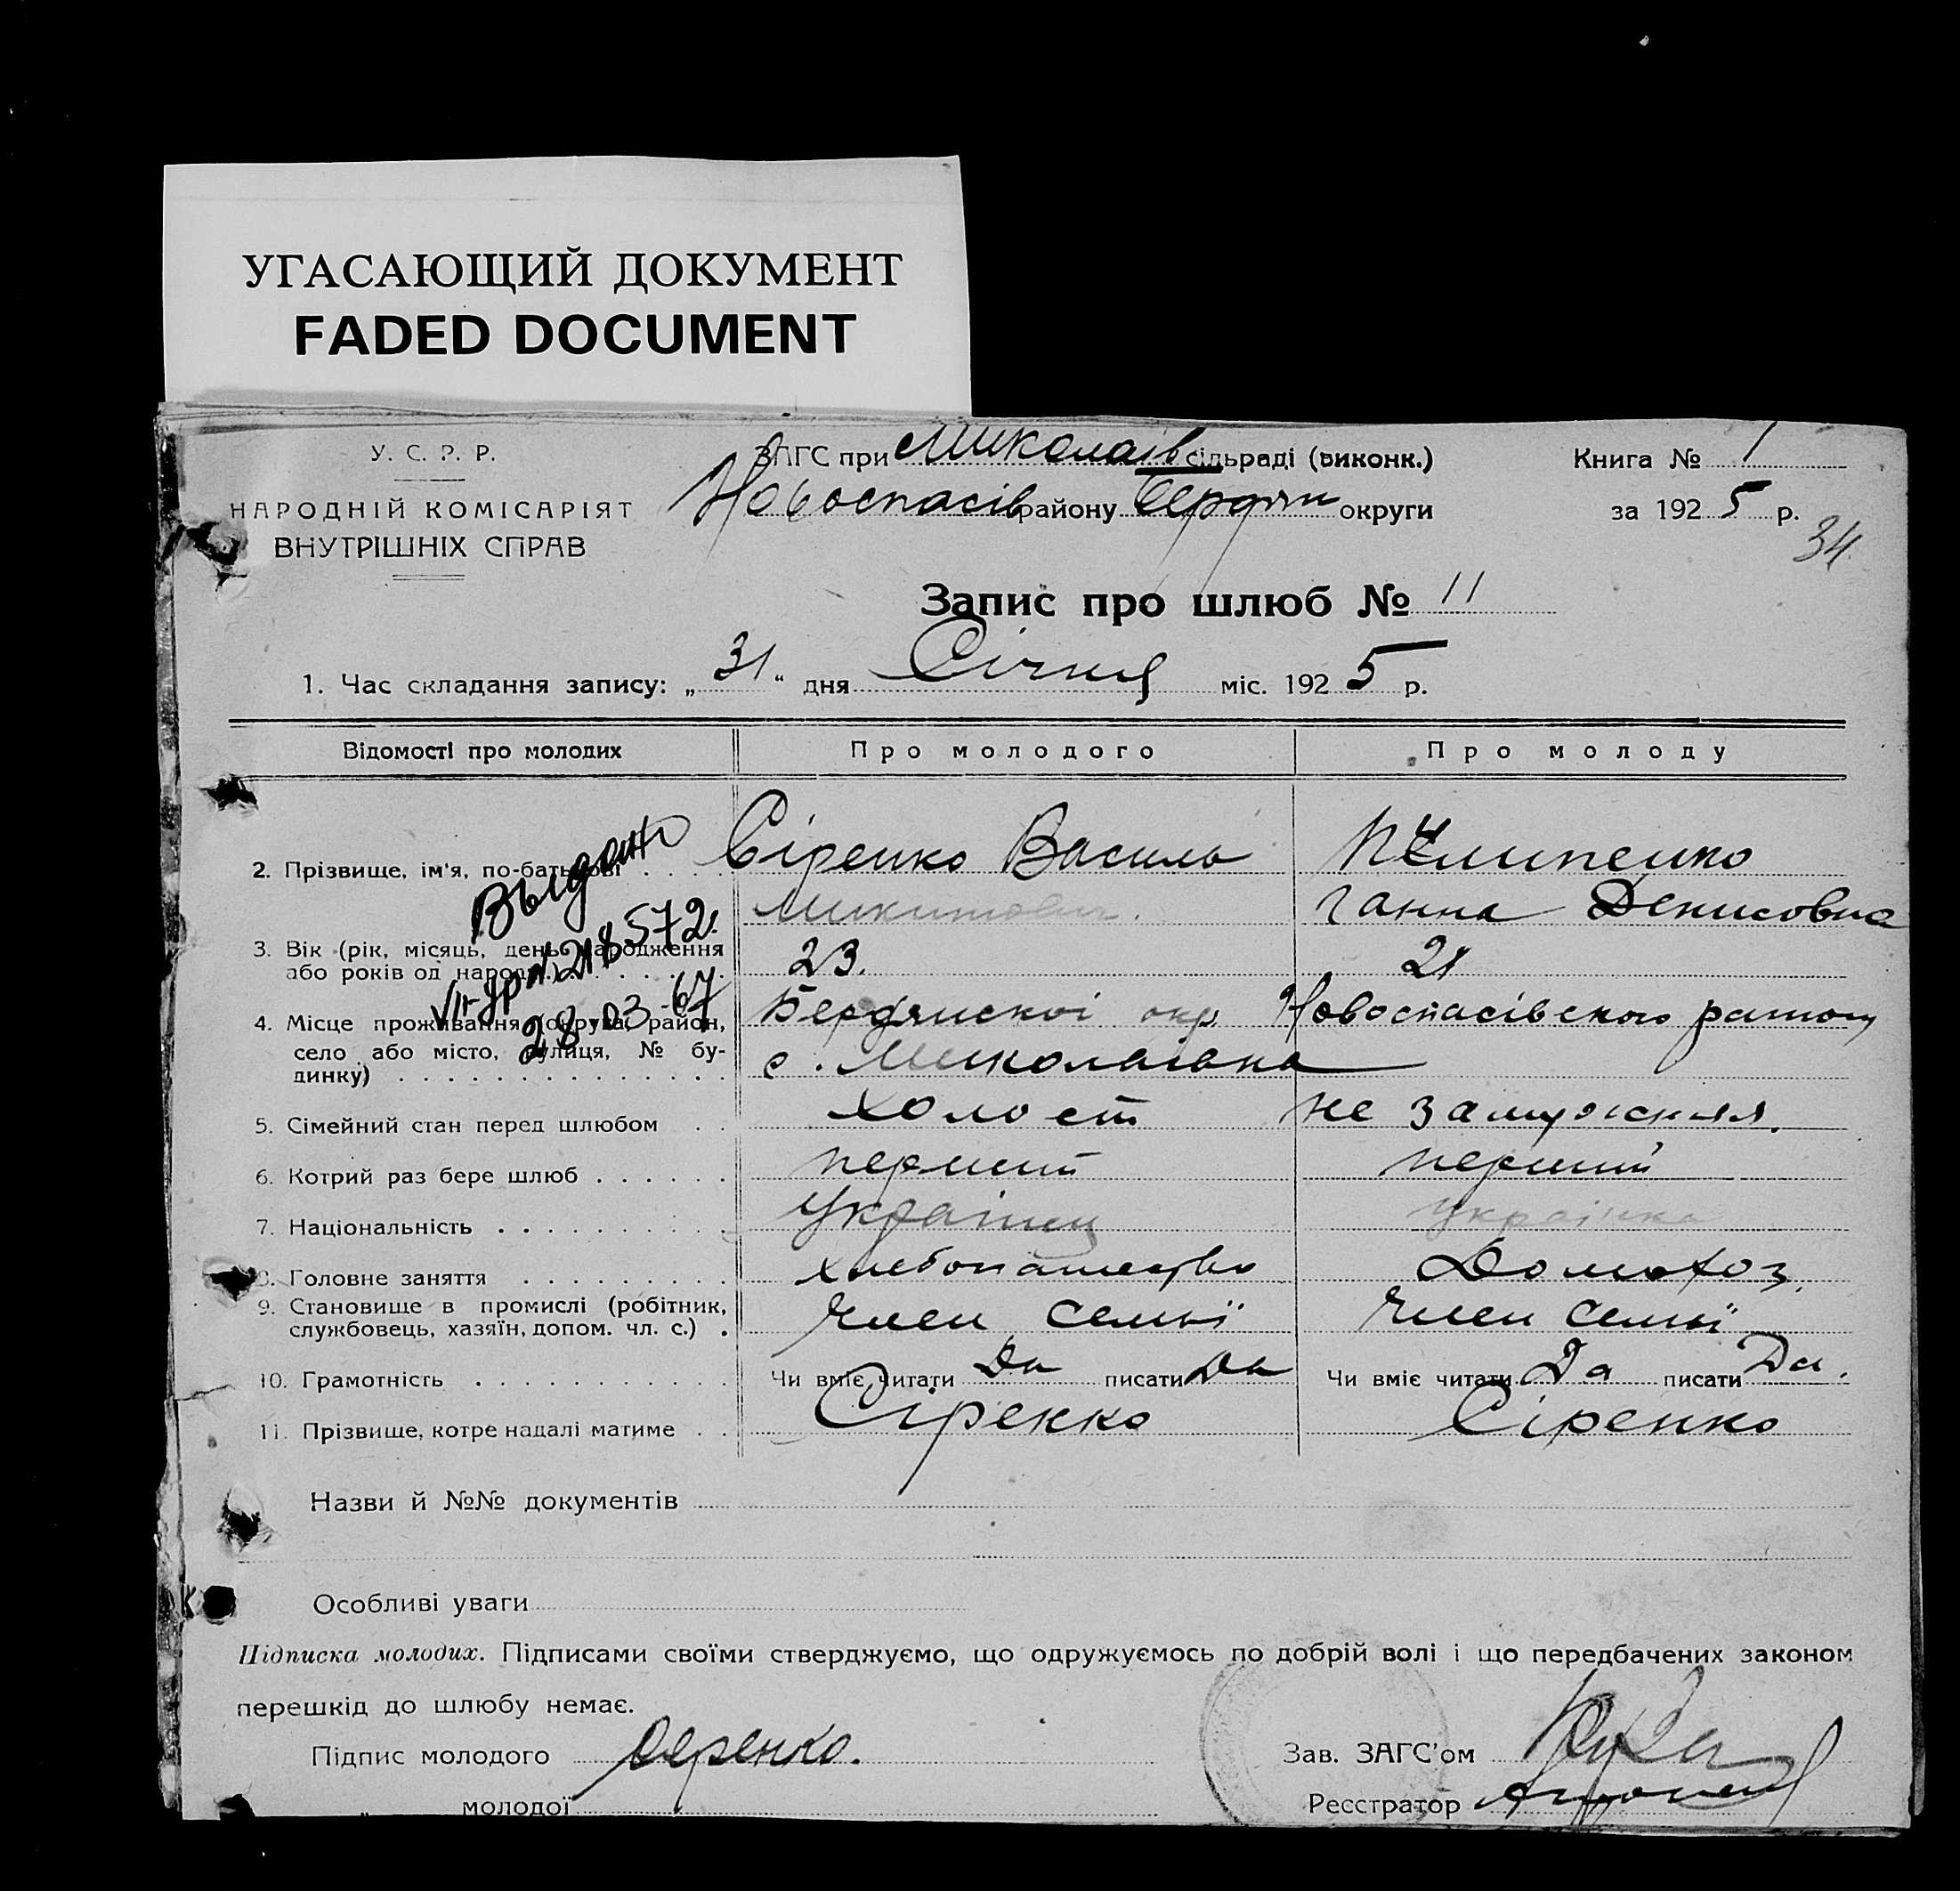 УГАСАЮЩИЙ ДОКУМЕНТ
FADED DOCUMENT
У. С. Р. Р.
НАРОДНІЙ КОМІСАРІЯТ
ВНУТРІШНІХ СПРАВ
ЗАГС при Миколаїв сільраді (виконк.)
Новоспасів району Бердян округи
Книга № 1
за 1925 р.
34
Запис про шлюб № 11
1. Час складання запису: „31“ дня Січня міс. 1925 р.
Відомості про молодих Про молодого Про молоду
2. Прізвище, ім'я, по-батькові Сіренко Василь Микитович. Ганна Денисовна
Выдано
218572
28-03-67
3. Вік (рік, місяць, день народження або років од народж.) 23. 21
4. Місце проживання (округа, район, село або місто, вулиця, № будинку) Бердянскої окр. Новоспасівского району
с. Миколаївка
5. Сімейний стан перед шлюбом холост не замужняя.
6. Котрий раз бере шлюб перший перший
7. Національність Українец Українка
8. Головне заняття хлебопашество Домохоз.
9. Становище в промислі (робітник, службовець, хазяїн, допом. чл. с.) Член семьї Член семьї
10. Грамотність Чи вміє читати Да писати Да Чи вміє читати Да писати Да.
11. Прізвище, котре надалі матиме Сіренко Сіренко
Назви й №№ документів
Особливі уваги
Підписка молодих. Підписами своїми стверджуємо, що одружуємось по добрій волі і що передбачених законом
перешкід до шлюбу немає.
Підпис молодого Серенко. Зав. ЗАГС'ом
„ молодої Реєстратор